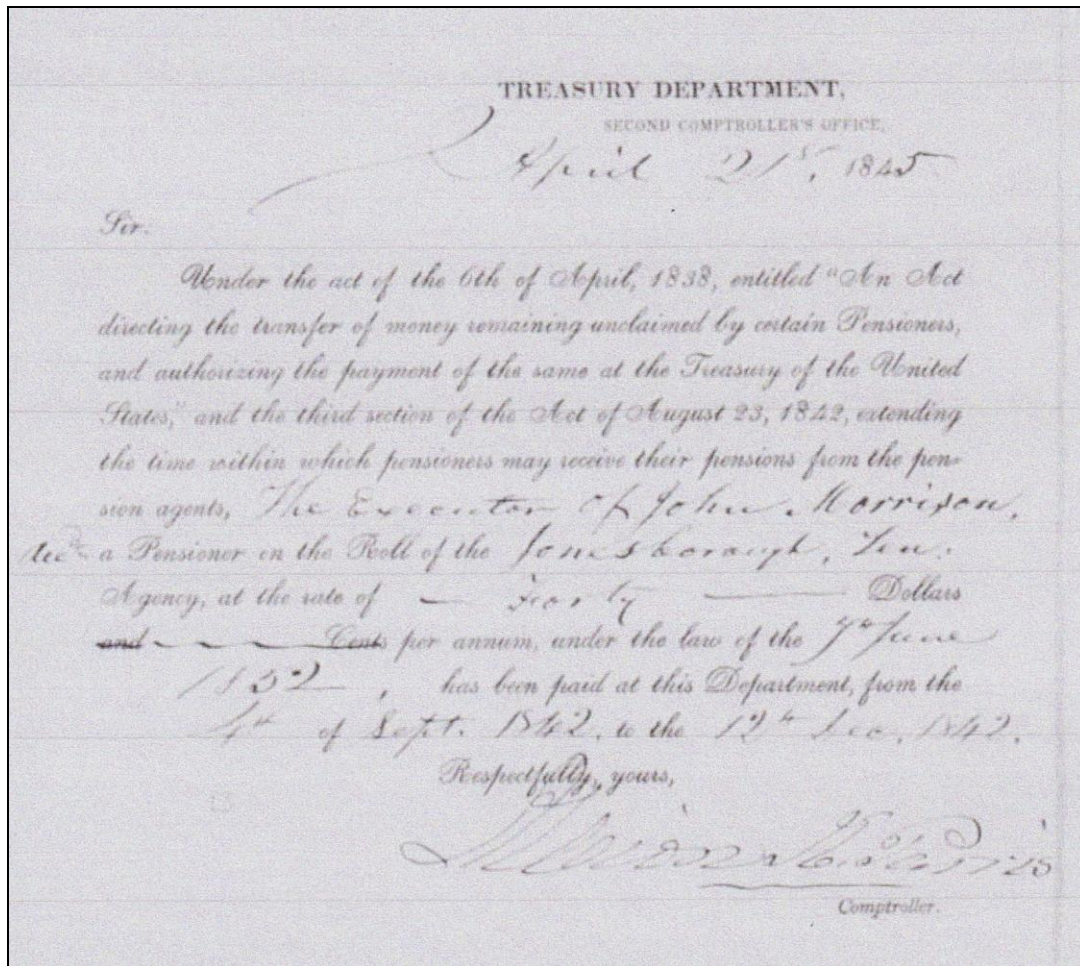 TREASURY DEPARTMENT,
SECOND COMPTROLLER'S OFFICE,
April 21st, 1845
Sir:
Under the act of the 6th of April, 1838, entitled "An Act
directing the transfer of money remaining unclaimed by certain Pensioners,
and authorizing the payment of the same at the Treasury of the United
States," and the third section of the Act of August 23, 1842, extending
the time within which pensioners may receive their pensions from the pen-
sion agents, The Executor of John Morrison,
decd a Pensioner on the Roll of the Jonesborough, Ten.
Agency, at the rate of — Forty — Dollars
and Cents per annum, under the law of the 7th June
1832, has been paid at this Department, from the
4th of Sept. 1842, to the 12th Dec, 1842.
Respectfully, yours,
Albion K. Parris
Comptroller.